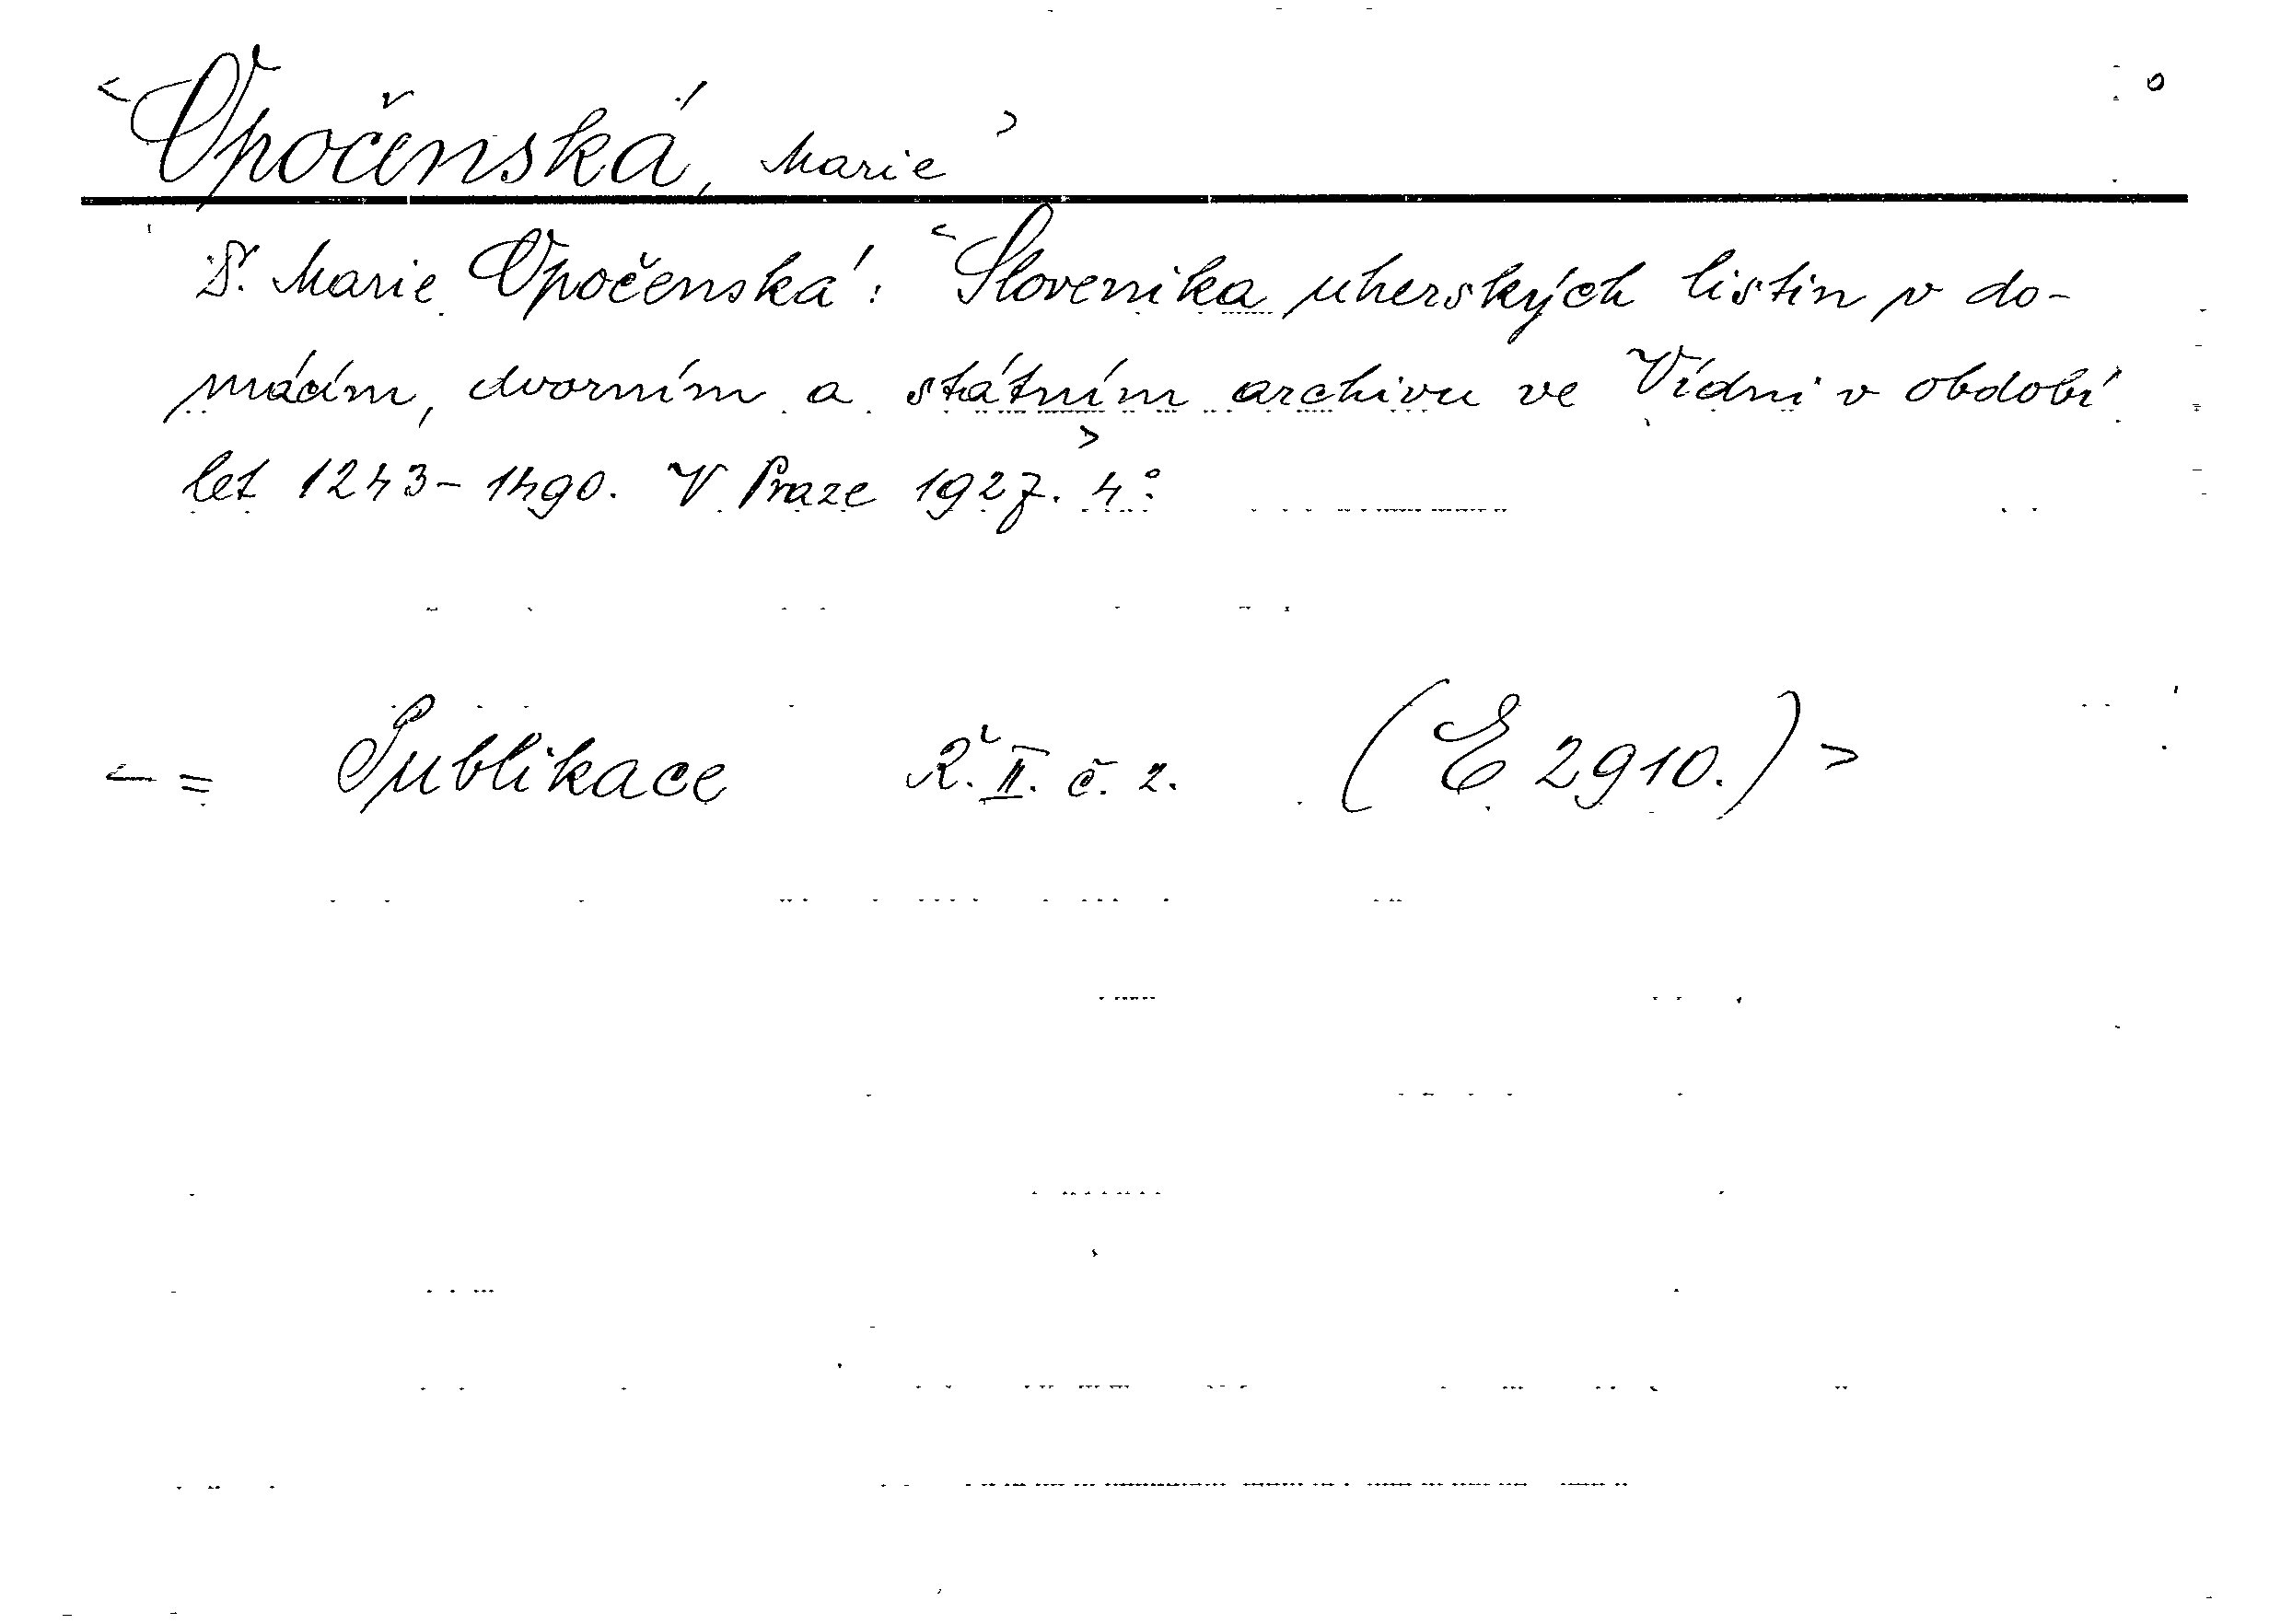 <Opočenská, Marie>
Dr. Marie Opočenská: <Slovenika uherských listin v do-
mácím, dvorním a státním archivu ve Vídni v období
let 1243-1490. V Praze 1927.> 4°.
<= Publikace Ř. II. č. 2. (E 2910.)>